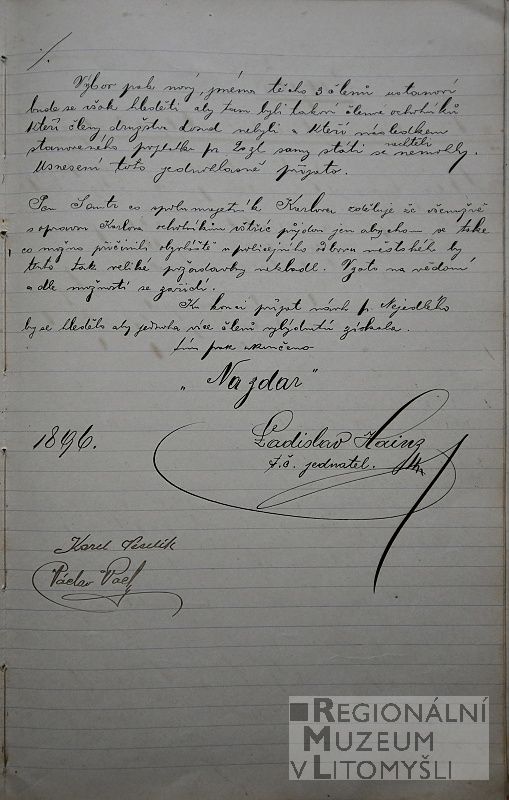 Výbor pak nový, jména těchto 3 členů ustanoví
bude se však hleděti aby tam byli takoví členové ochotníků
kteří členy družstva dosud nebyli a kteří následkem
stanoveného po 20 zl samy státi se nechtěli nemohly.
Usnesení toto jednohlasně přijato.
Pan Šantr co spolumajetník Karlova sděluje že
s opravou Karlova ochotníkům vstříc půjdou jen abychom se také
co možno přičinili u policejního odboru městského by
tyto tak veliké požadavky nekladl. Vzato na vědomí
a dle možnosti se zařídí.
Ku konci přijat návrh p. Nejedlého
by se hledělo aby jednota více členů získala.
tím pak ukončeno
„Nazdar"
1896.
Ladislav Hainz
t.č. jednatel.
Karel
Václav
REGIONÁLNÍ
MUZEUM
V LITOMYŠLI